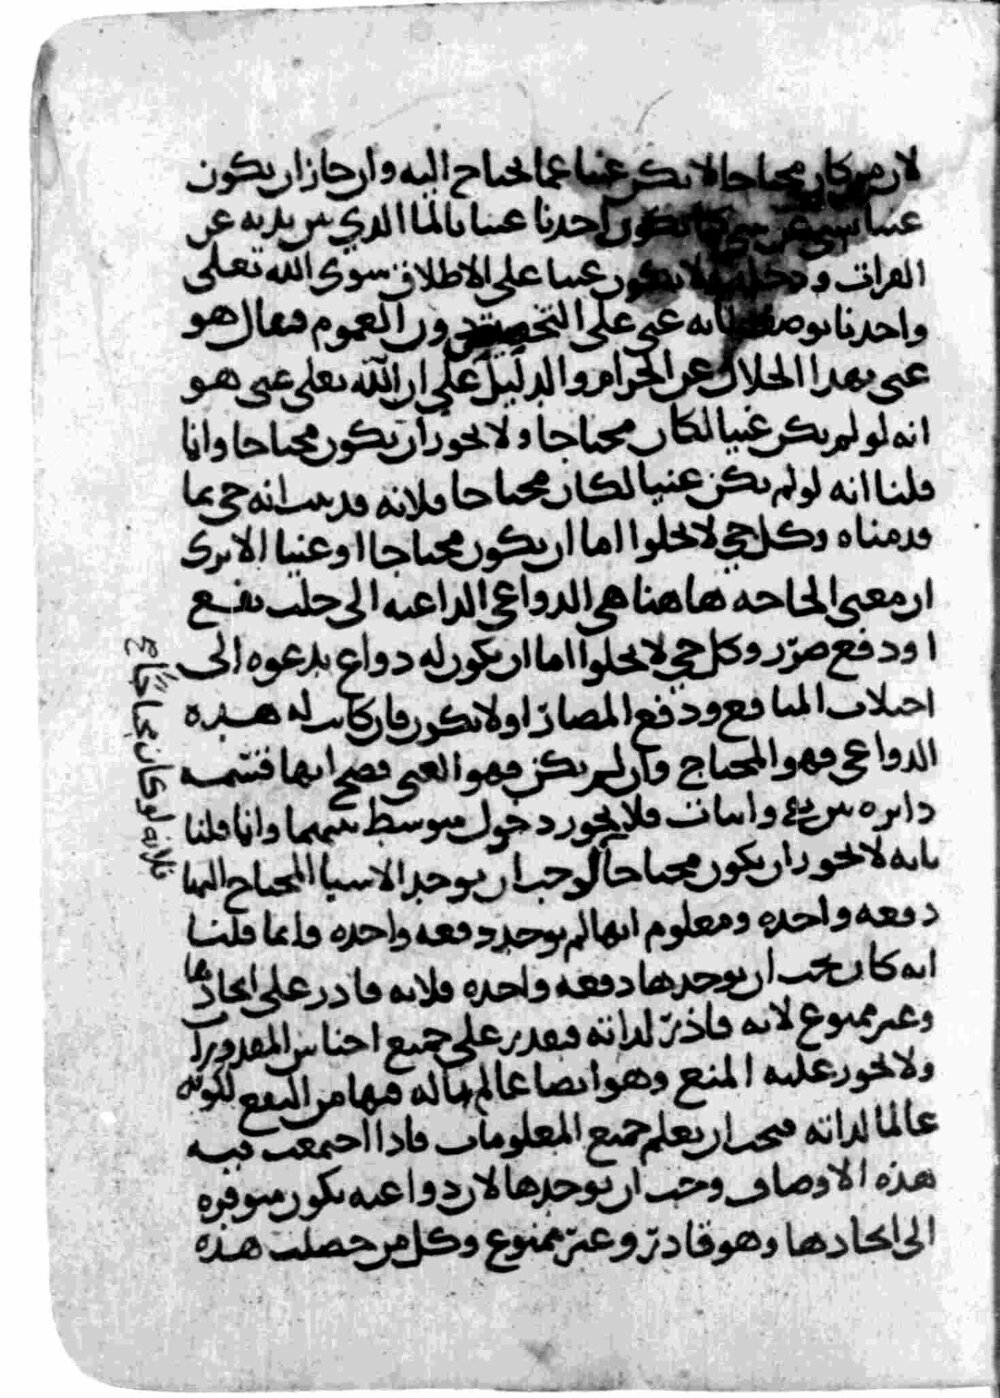 لان من كان محتاجا لا يكن غنيا عما يحتاج اليه وان جاز ان يكون
غنيا بشي عن شي كما يكون احدنا غنيا بالما الذي بين يديه عن
الفرات ودجله ولا يكون غنيا على الاطلاق سوى الله تعلى
واحدنا يوصف بانه غني على التخصيص دون العموم فيقال هو
غني بهذا الحلال عن الحرام والدليل على ان الله تعلى غني هو
انه لو لم يكن غنيا لكان محتاجا ولا يجوز ان يكون محتاجا وانما
قلنا انه لو لم يكن غنيا لكان محتاجا فلانه قد ثبت انه حي بما
قدمناه وكل حي لا يخلوا اما ان يكون محتاجا او غنيا الا ترى
ان معنى الحاجه هاهنا هي الدواعي الداعيه الى جلب نفع
او دفع ضرر وكل حي لا يخلوا اما ان يكون له دواع يدعوه الى
اجتلاب المنافع ودفع المضار او لا يكون فان كانت له هذه
الدواعي فهو المحتاج وان لم يكن فهو الغني فصح انها قسمه
دايره بين نفي واثبات فلا يجوز دخول متوسط بينهما وانما قلنا
بانه لا يجوز ان يكون محتاجا لوجب ان يوجد الاشيا المحتاج اليها
دفعه واحده ومعلوم انها لم يوجد دفعه واحده وانما قلنا
انه كان يجب ان يوجدها دفعه واحده فلانه قادر على ايجادها
وغير ممنوع لانه قادر لذاته فيقدر على جميع اجناس المقدورات
ولا يجوز عليه المنع وهو ايضا عالم بما له فيها من النفع لكونه
عالما لذاته فيجب ان يعلم جميع المعلومات فاذا اجتمعت فيه
هذه الاوصاف وجب ان يوجدها لان دواعيه تكون متوفره
الى ايجادها وهو قادر وغير ممنوع وكل من حصلت هذه
فلانه لو كان محتاجا